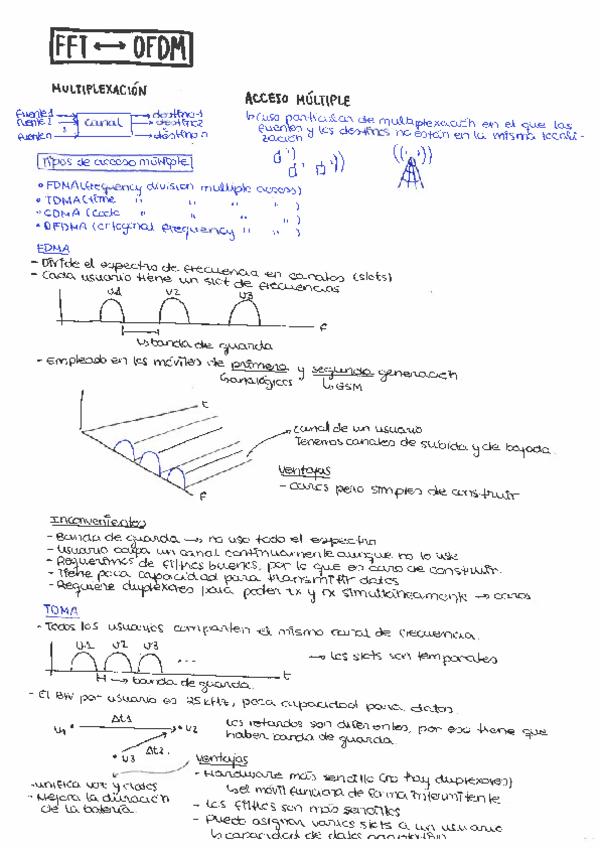 FFT ↔ OFDM
MULTIPLEXACIÓN
ACCESO MÚLTIPLE
fuente 1
fuente 2
fuente n
canal
destino 1
destino 2
destino n
↳ Caso particular de multiplexación en el que las
fuentes y los destinos no están en la misma locali-
zación
Tipos de acceso múltiple
• FDMA (frequency division multiple access)
• TDMA (time " " " " )
• CDMA (code " " " " )
• OFDMA (ortogonal frequency " " )
FDMA
- Divide el espectro de frecuencia en canales (slots)
- Cada usuario tiene un slot de frecuencias
U1 U2 U3
F
↳ banda de guarda
- Empleado en los móviles de primera y segunda generación
↳ analógicos ↳ GSM
t
canal de un usuario
Tenemos canales de subida y de bajada.
F
Ventajas
- caros pero simples de construir
Inconvenientes
- Banda de guarda → no uso todo el espectro
- Usuario ocupa un canal continuamente aunque no lo use
- Requerimos de filtros buenos, por lo que es caro de construir.
- Tiene poca capacidad para transmitir datos
- Requiere duplexores para poder tx y rx simultáneamente → caros
TDMA
- Todos los usuarios comparten el mismo canal de frecuencia.
U1 U2 U3 ...
t
→ los slots son temporales
↦ banda de guarda.
- El BW por usuario es 25 kHz, poca capacidad para datos.
U1 Δt1 U2
Δt2.
U3
Los retardos son diferentes, por eso tiene que
haber banda de guarda.
Ventajas
- Hardware más sencillo (no hay duplexores)
↳ el móvil funciona de forma intermitente
- Los filtros son más sencillos
- Puedo asignar varios slots a un usuario
↳ capacidad de datos
- unifica voz y datos
- Mejora la duración
de la batería.